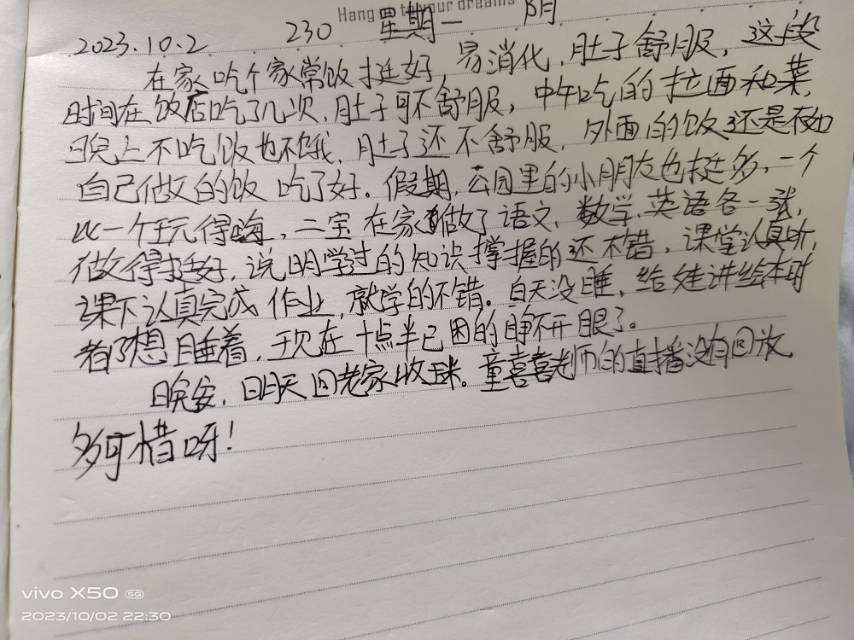 Hang your dreams
2023.10.2 230 星期一 阴
在家吃个家常饭挺好,易消化,肚子舒服,这段
时间在饭店吃了几次,肚子可不舒服,中午吃的拉面和菜,
晚上不吃饭也不饿,肚子还不舒服,外面的饭还是不如
自己做的饭吃了好。假期,公园里的小朋友也挺多,一个
比一个玩得嗨,二宝在家做了语文、数学、英语各一张,
做得挺好,说明学过的知识撑握的还不错,课堂认真听,
课下认真完成作业,就学的不错。白天没睡,给娃讲绘本时
着了想睡着,现在十点半已困的睁不开眼了。
晚安,明天回老家收玉米。童喜喜老师的直播没有回放,
多可惜呀!
vivo X50 5G
2023/10/02 22:30